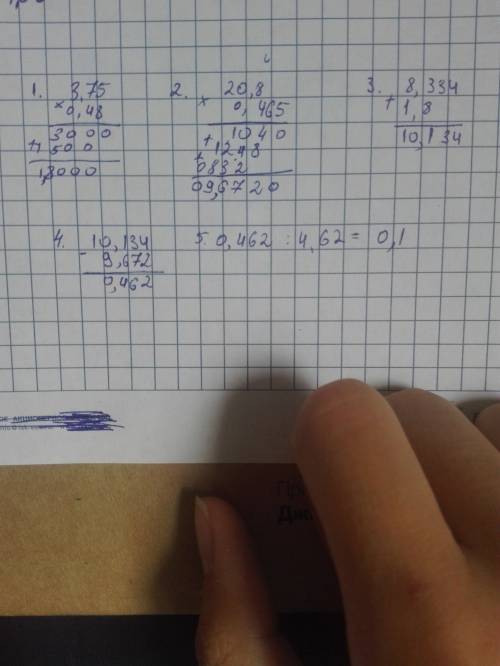 1. 3,75
× 0,48
3000
+1500
1,8000
2. 20,8
× 0,465
1040
+1248
+0832
09,6720
3. 8,334
+ 1,8
10,134
4. 10,134
- 9,672
0,462
5. 0,462 : 4,62 = 0,1